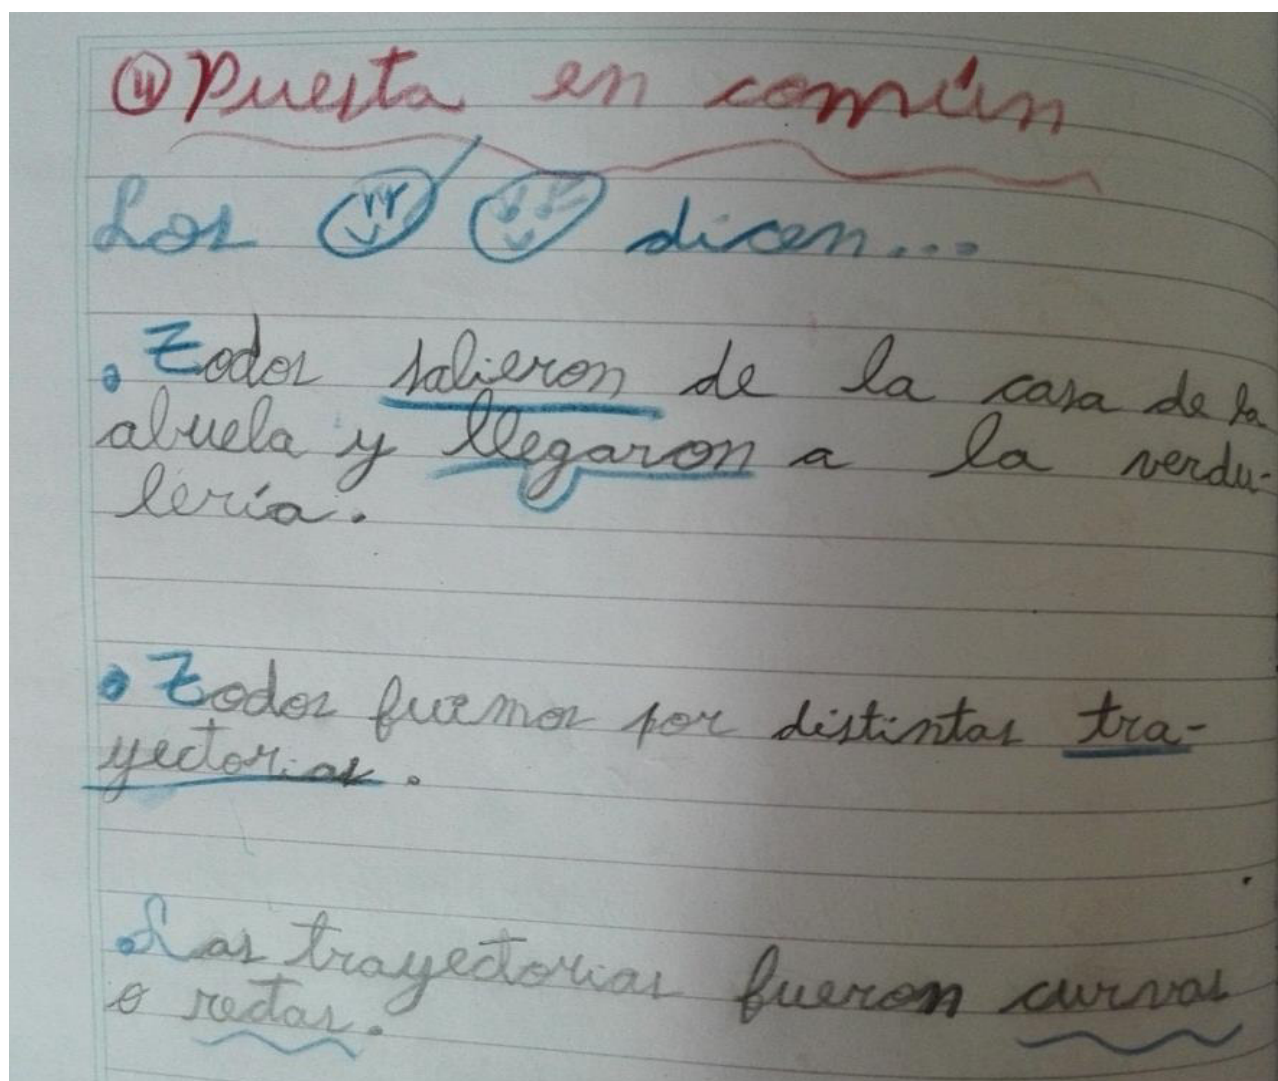 ④ Puesta en común
Los dicen...
• Todos salieron de la casa de la
abuela y llegaron a la verdu-
lería.
• Todos fuemos por distintas tra-
yectorias.
• Las trayectorias fueron curvas
o rectas.